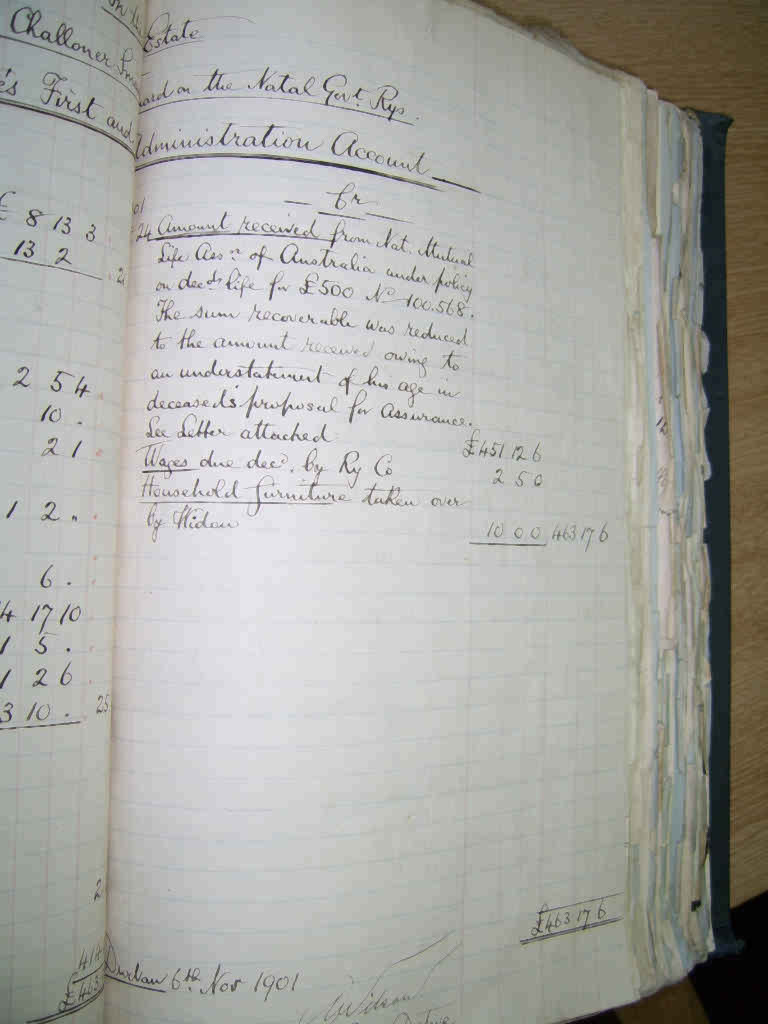 Challoner
's First and
£ 8 13 3
13 2
2 5 4
10 .
2 1
1 2 "
6 .
4 17 10
1 5 .
1 2 6
3 10 . 25
2
414
£463
Estate
on the Natal Govt. Rys.
Administration Account
Cr
01
24 Amount received from Nat. Mutual
Life Assn. of Australia under policy
on decds life for £500 No 100.568.
The sum recoverable was reduced
to the amount received owing to
an understatement of his age in
deceased's proposal for Assurance.
See Letter attached £451 12 6
Wages due decd. by Ry Co 2 5 0
Household furniture taken over
by Widow 10 0 0 463 17 6
£463 17 6
Durban 6th Nov 1901